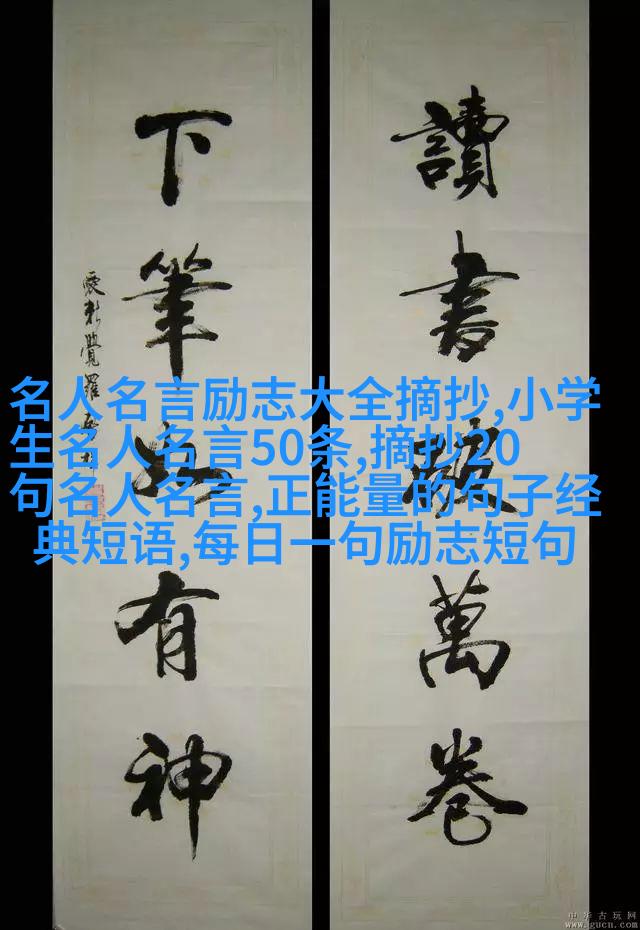 讀書破萬卷
下筆如有神
愛新覺羅
名人名言励志大全摘抄,小学
生名人名言50条,摘抄20
句名人名言,正能量的句子经
典短语,每日一句励志短句
中华古玩网
www.gucn.com